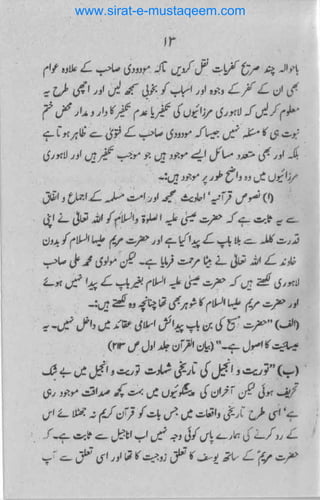 www.sirat-e-mustaqeem.com
۱۳
باحوالہ چند صریح کفریات نقل کردیں تاکہ مودودی صاحب کے علاوہ عوام
بھی ان کے کفر کے وجوہ اور اسباب کو بخوبی سمجھ لیں اور اچھی طرح یہ
معلوم کر لیں کہ لاہوری مرزائیوں کی تکفیر یا عدم تکفیر کا دار و مدار محض ختم
نبوت ہی کا مسئلہ نہیں جیسا کہ مودودی صاحب کے فتویٰ سے ظاہر ہوتا ہے
بلکہ اور بھی متعدد مسائل ایسے موجود ہیں جو موجب تکفیر ہیں اور لاہوری
مرزائیوں میں وہ واضح طور پر موجود ہیں:۔
(۱) نصوص قرآنیہ ' احادیث صحیحہ اور امت مسلمہ کے اجماع و اتفاق
سے یہ ثابت ہے کہ حضرت عیسیٰ علیہ الصلوۃ والسلام کو اللہ تعالی نے اپنی
قدرت کاملہ سے بلا باپ کے پیدا کیا ہے اور حضرت مریم علیہا السلام کو بدون
خاوند کے اللہ تعالی نے بیٹا مرحمت فرمایا ہے۔ لیکن مولوی محمد علی صاحب
لاہوری یہ لکھتے ہیں کہ حضرت عیسیٰ علیہ السلام بغیر باپ کے پیدا نہیں ہوئے
اور حضرت مریم علیہا السلام کا شوہر بھی تھا چنانچہ وہ لکھتے ہیں:۔
(الف) "حضرت مسیح کی بن باپ پیدائش اسلامی عقائد میں داخل نہیں۔ یہ
عیسائیت کا اصول ہے۔" (بیان القرآن جلد اول ص ۲۱۳)
(ب) "توریت و انجیل کی تاریخی شہادت توریت و انجیل میں بے شک
تحریف ہوئی لیکن آخر ان کی پیشگوئیوں میں بہت کچھ صداقت موجود رہی
ہے' اسی طرح تاریخی واقعات میں جس بات کو قرآن کریم نہ جھٹلائے اس
کے رد کرنے کی ہمارے پاس کوئی وجہ نہیں اب اناجیل سے ثابت ہے۔ کہ
حضرت مریم کے ساتھ یوسف کا تعلق زوجیت کا تھا اور اسی تعلق سے آپ